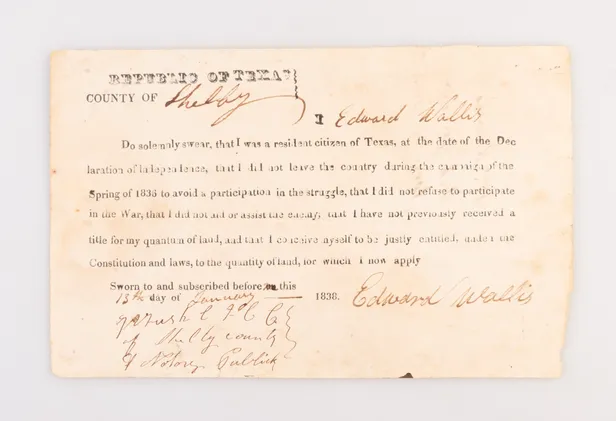 REPUBLIC OF TEXAS
COUNTY OF Shelby
I Edward Wallis
Do solemnly swear, that I was a resident citizen of Texas, at the date of the Dec
laration of Independence, that I did not leave the country during the campaign of the
Spring of 1836 to avoid a participation in the struggle, that I did not refuse to participate
in the War, that I did not aid or assist the enemy, that I have not previously received a
title for my quantum of land, and that I conceive myself to be justly entitled, under the
Constitution and laws, to the quantity of land, for which I now apply
Sworn to and subscribed before, on this
13th day of January 1838. Edward Wallis
of Shelby county
& Notory Publick